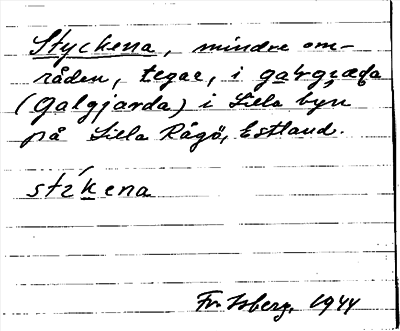 Styckena, mindre om-
råden, tegar, i
(Galgjarda) i Lilla byn
på Lilla Rågö, Estland.
Isberg, 1944